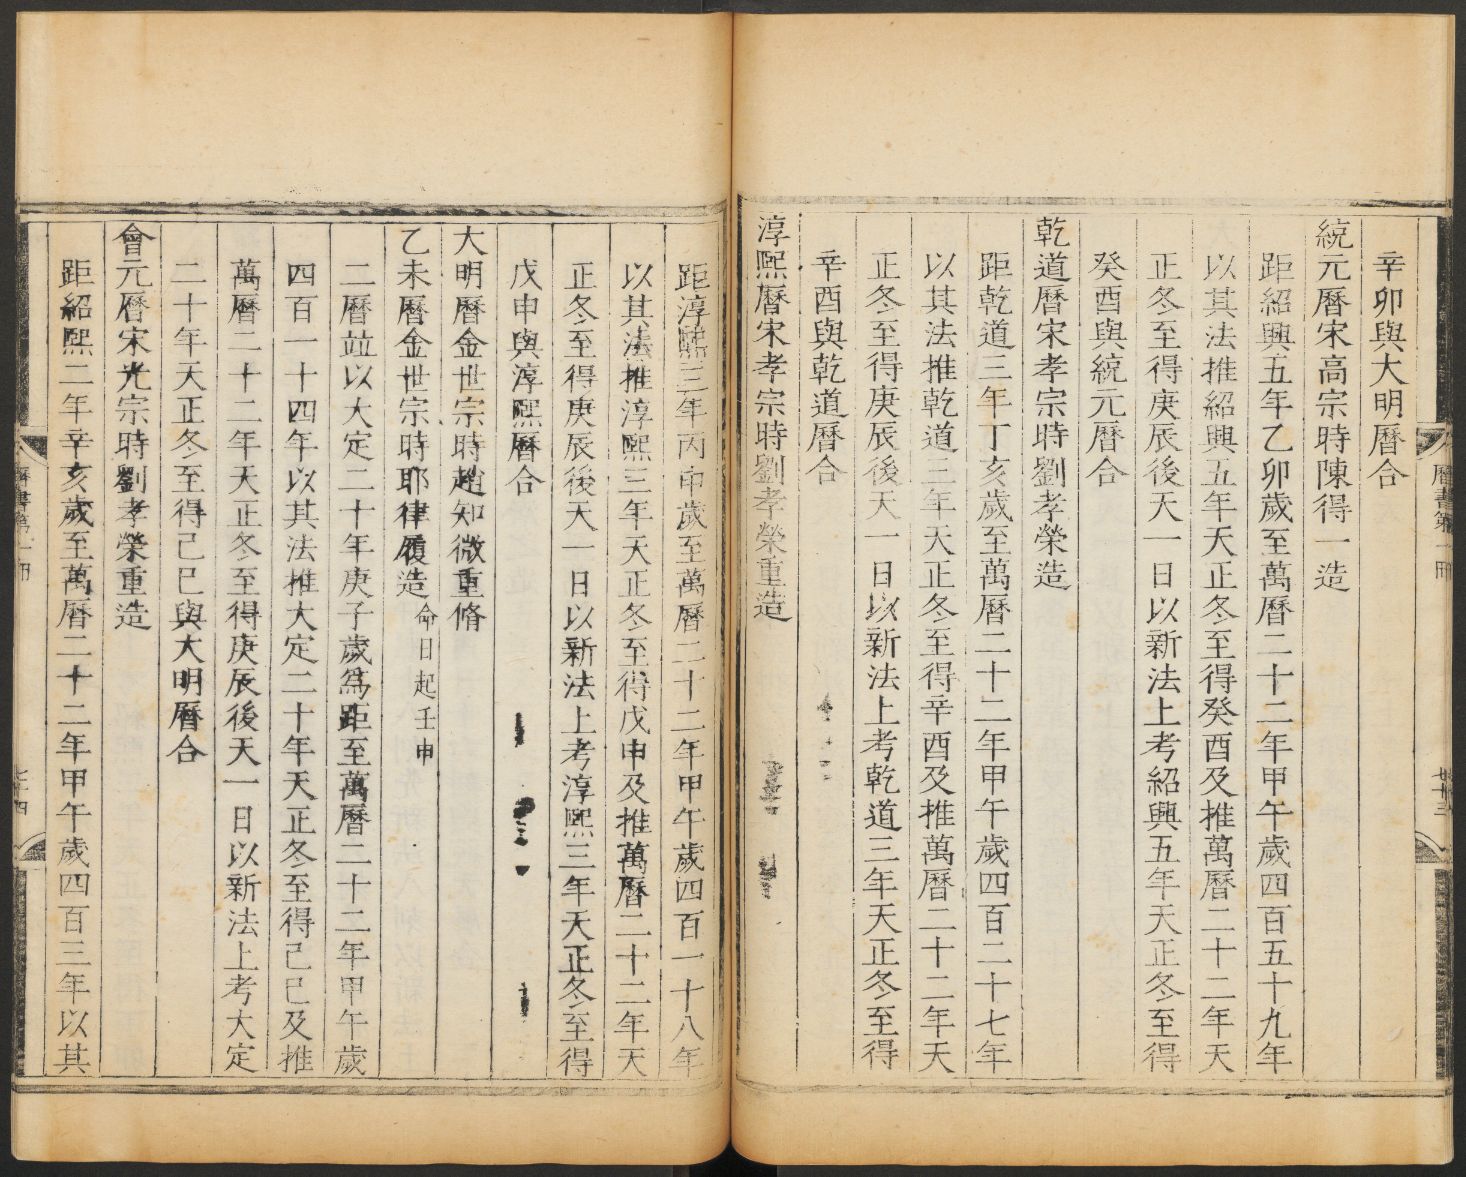 辛卯與大明曆合
統元曆宋高宗時陳得一造
距紹興五年乙卯歲至萬曆二十二年甲午歲四百五十九年
以其法推紹興五年天正冬至得癸酉及推萬曆二十二年天
正冬至得庚辰後天一日以新法上考紹興五年天正冬至得
癸酉與統元曆合
乾道曆宋孝宗時劉孝榮造
距乾道三年丁亥歲至萬曆二十二年甲午歲四百二十七年
以其法推乾道三年天正冬至得辛酉及推萬曆二十二年天
正冬至得庚辰後天一日以新法上考乾道三年天正冬至得
辛酉與乾道曆合
淳熙曆宋孝宗時劉孝榮重造
曆書第一冊
距淳熙三年丙申歲至萬曆二十二年甲午歲四百一十八年
以其法推淳熙三年天正冬至得戊申及推萬曆二十二年天
正冬至得庚辰後天一日以新法上考淳熙三年天正冬至得
戊申與淳熙曆合
大明曆金世宗時趙知微重脩
乙未曆金世宗時耶律履造命日起壬申
二曆竝以大定二十年庚子歲爲距至萬曆二十二年甲午歲
四百一十四年以其法推大定二十年天正冬至得己巳及推
萬曆二十二年天正冬至得庚辰後天一日以新法上考大定
二十年天正冬至得己巳與大明曆合
會元曆宋光宗時劉孝榮重造
距紹熙二年辛亥歲至萬曆二十二年甲午歲四百三年以其
曆書第一冊